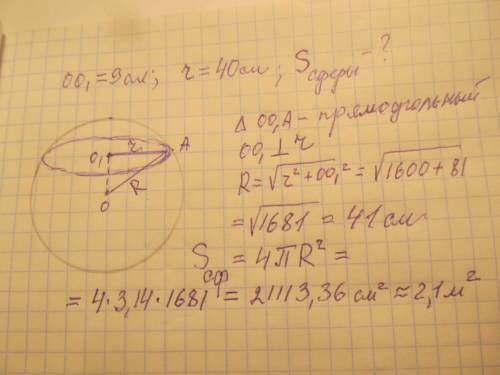 OO₁ = 9 см; r = 40 см; Sсферы = ?
O₁ r A
O R
Δ OO₁A – прямоугольный
OO₁ ⊥ r
R = √r² + OO₁² = √1600 + 81
= √1681 = 41 см
Sсф = 4πR² =
= 4·3,14·1681 = 21113,36 см² ≈ 2,1 м²